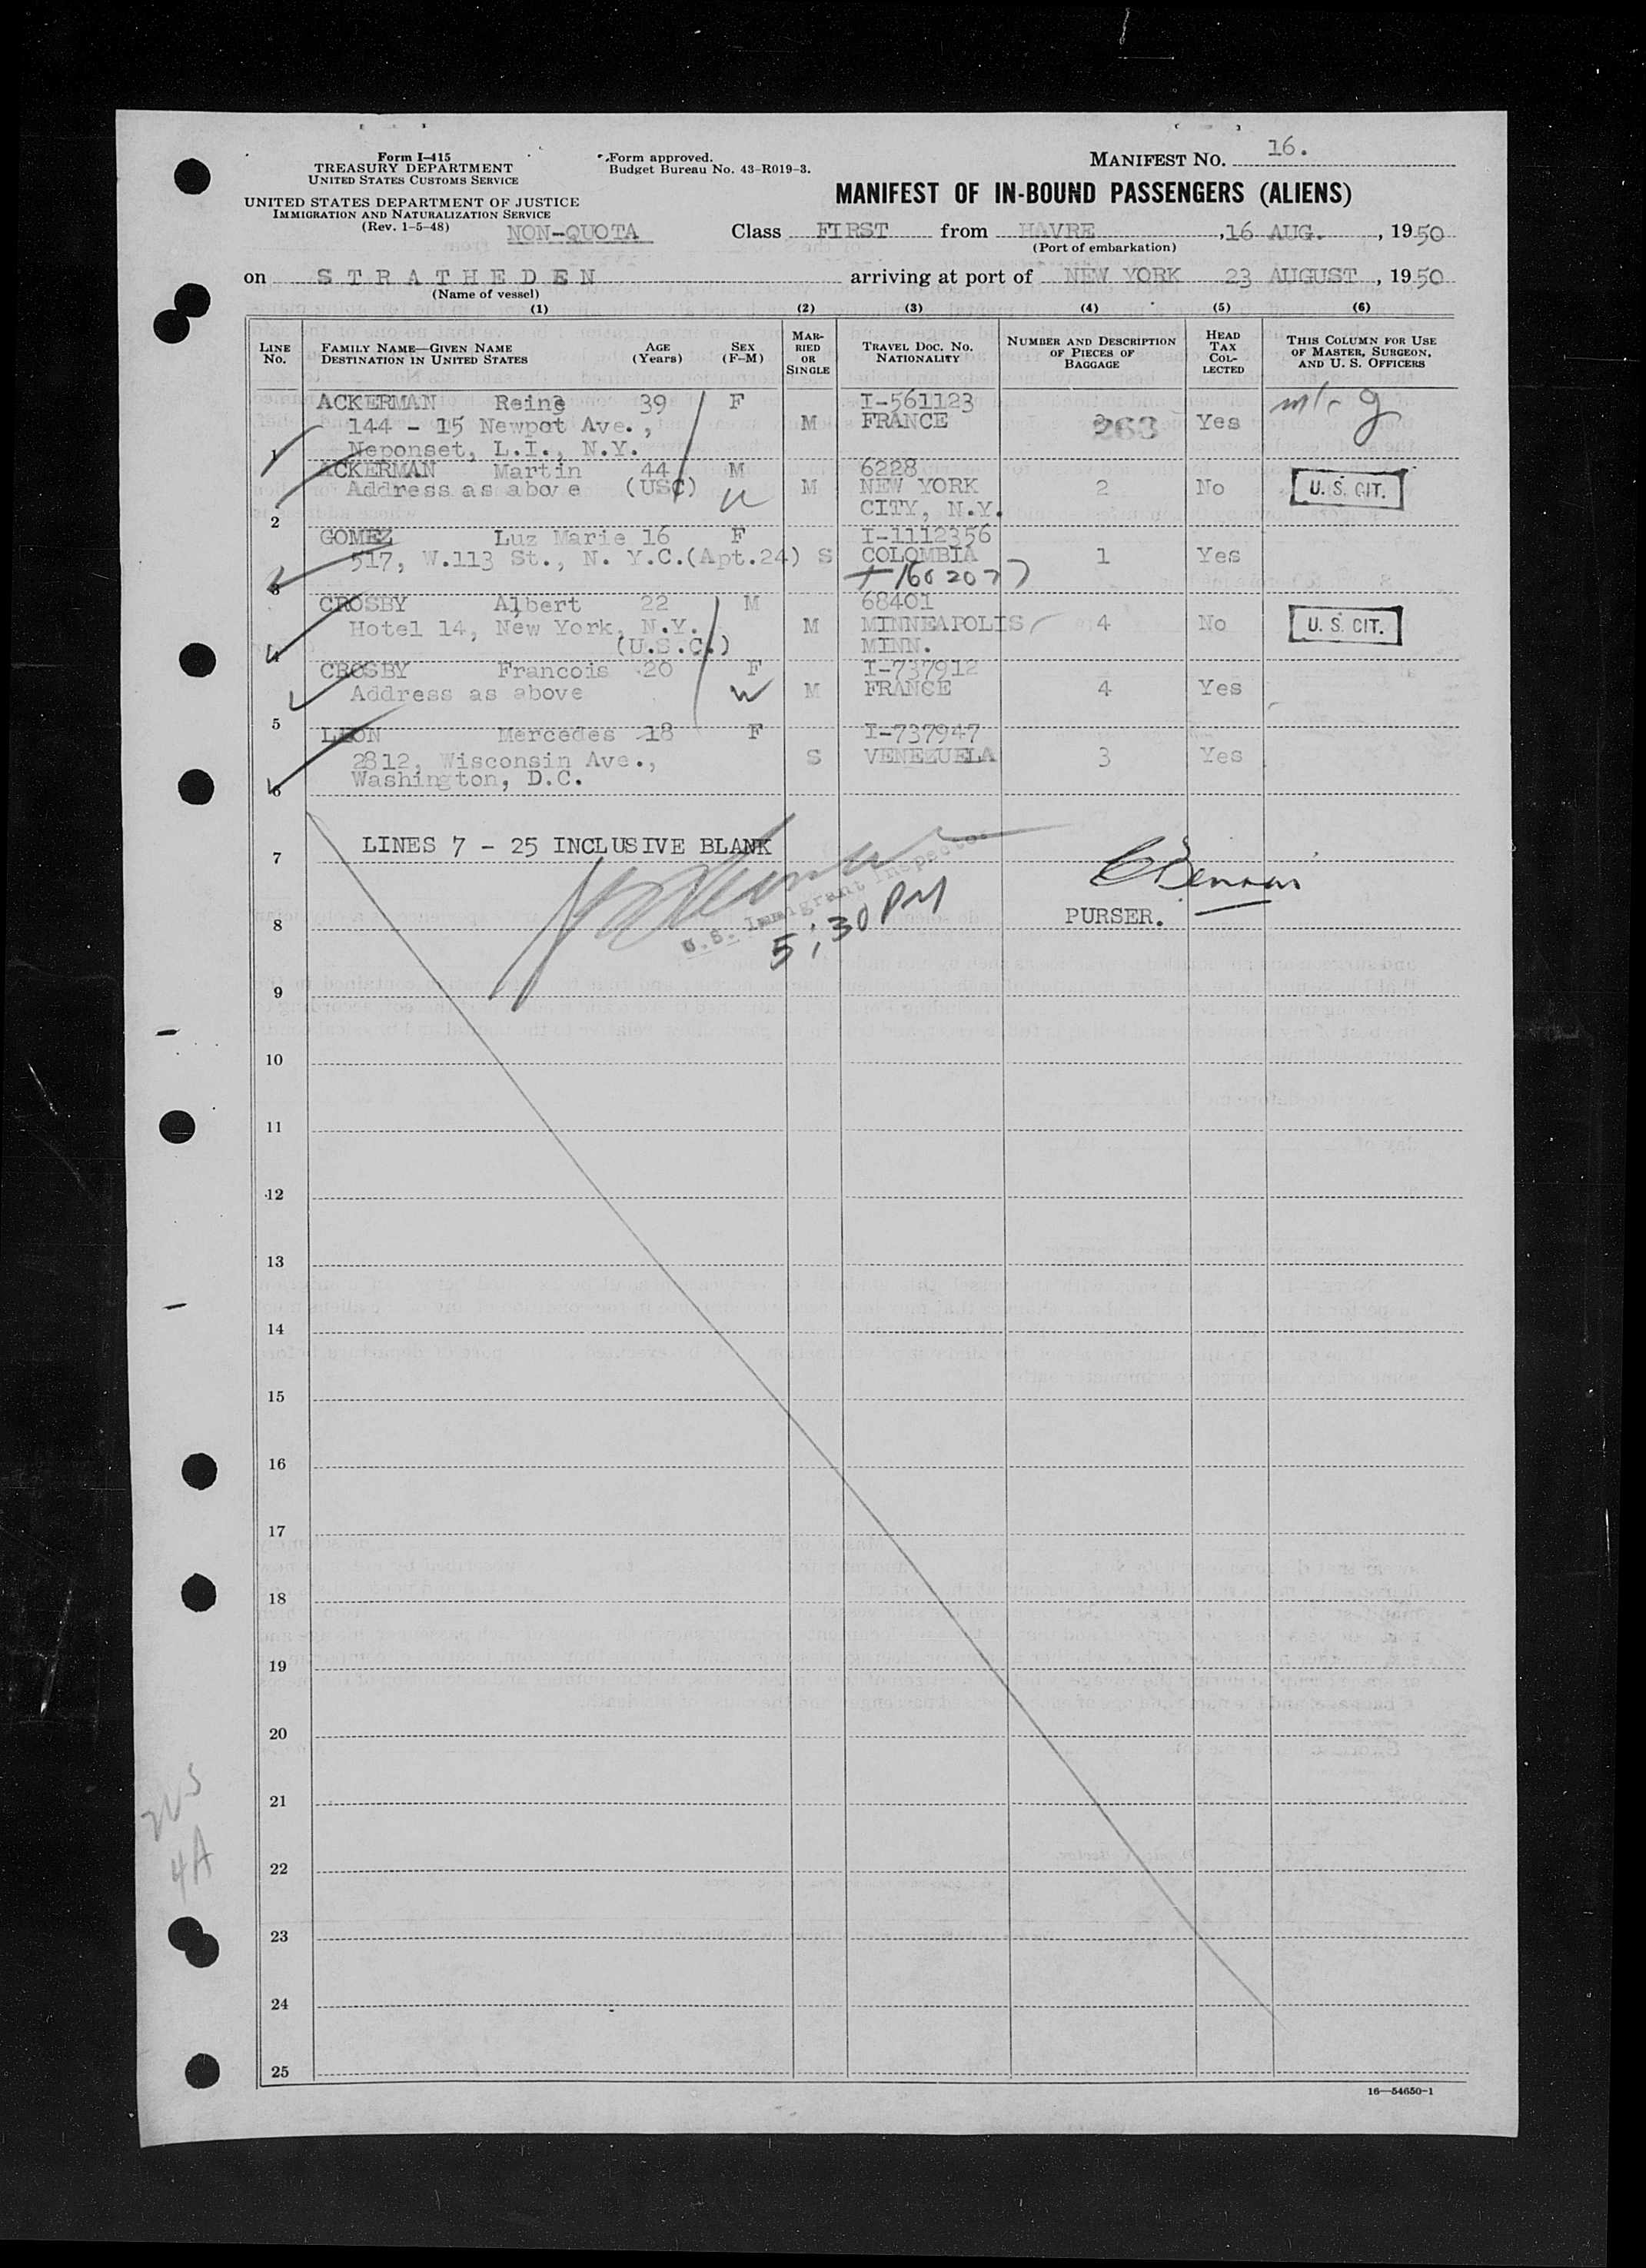 Form I-415
TREASURY DEPARTMENT
UNITED STATES CUSTOMS SERVICE
UNITED STATES DEPARTMENT OF JUSTICE
IMMIGRATION AND NATURALIZATION SERVICE
(Rev. 1-5-48)
Form approved.
Budget Bureau No. 43-R019-3.
MANIFEST NO. 16.
MANIFEST OF IN-BOUND PASSENGERS (ALIENS)
NON-QUOTA Class FIRST from HAVRE, 16 AUG., 1950
(Port of embarkation)
on STRATHEDEN arriving at port of NEW YORK 23 AUGUST, 1950
(Name of vessel)
(1) (2) (3) (4) (5) (6)
LINE No. FAMILY NAME—GIVEN NAME DESTINATION IN UNITED STATES AGE (Years) SEX (F-M) MARRIED OR SINGLE TRAVEL DOC. NO. NATIONALITY NUMBER AND DESCRIPTION OF PIECES OF BAGGAGE HEAD TAX COLLECTED THIS COLUMN FOR USE OF MASTER, SURGEON, AND U. S. OFFICERS
ACKERMAN Reine 39 F I-561123
144 - 15 Newpot Ave., M FRANCE 263 Yes
1 Neponset, L.I., N.Y.
ACKERMAN Martin 44 M 6228
Address as above (USC) M NEW YORK 2 No U. S. CIT.
2 CITY, N.Y.
GOMEZ Luz Marie 16 F I-1112356
517, W.113 St., N. Y.C.(Apt.24) S COLOMBIA 1 Yes
3
CROSBY Albert 22 M 68401
Hotel 14, New York, N.Y. M MINNEAPOLIS 4 No U. S. CIT.
4 (U.S.C.) MINN.
CROSBY Francois 20 F I-737912
Address as above M FRANCE 4 Yes
5
LEON Mercedes 18 F I-737947
2812, Wisconsin Ave., S VENEZUELA 3 Yes
6 Washington, D.C.
7 LINES 7 - 25 INCLUSIVE BLANK
U.S. Immigrant Inspector
5:30 PM
8 PURSER.
9
10
11
12
13
14
15
16
17
18
19
20
21
22
4A
23
24
25
16—54650-1